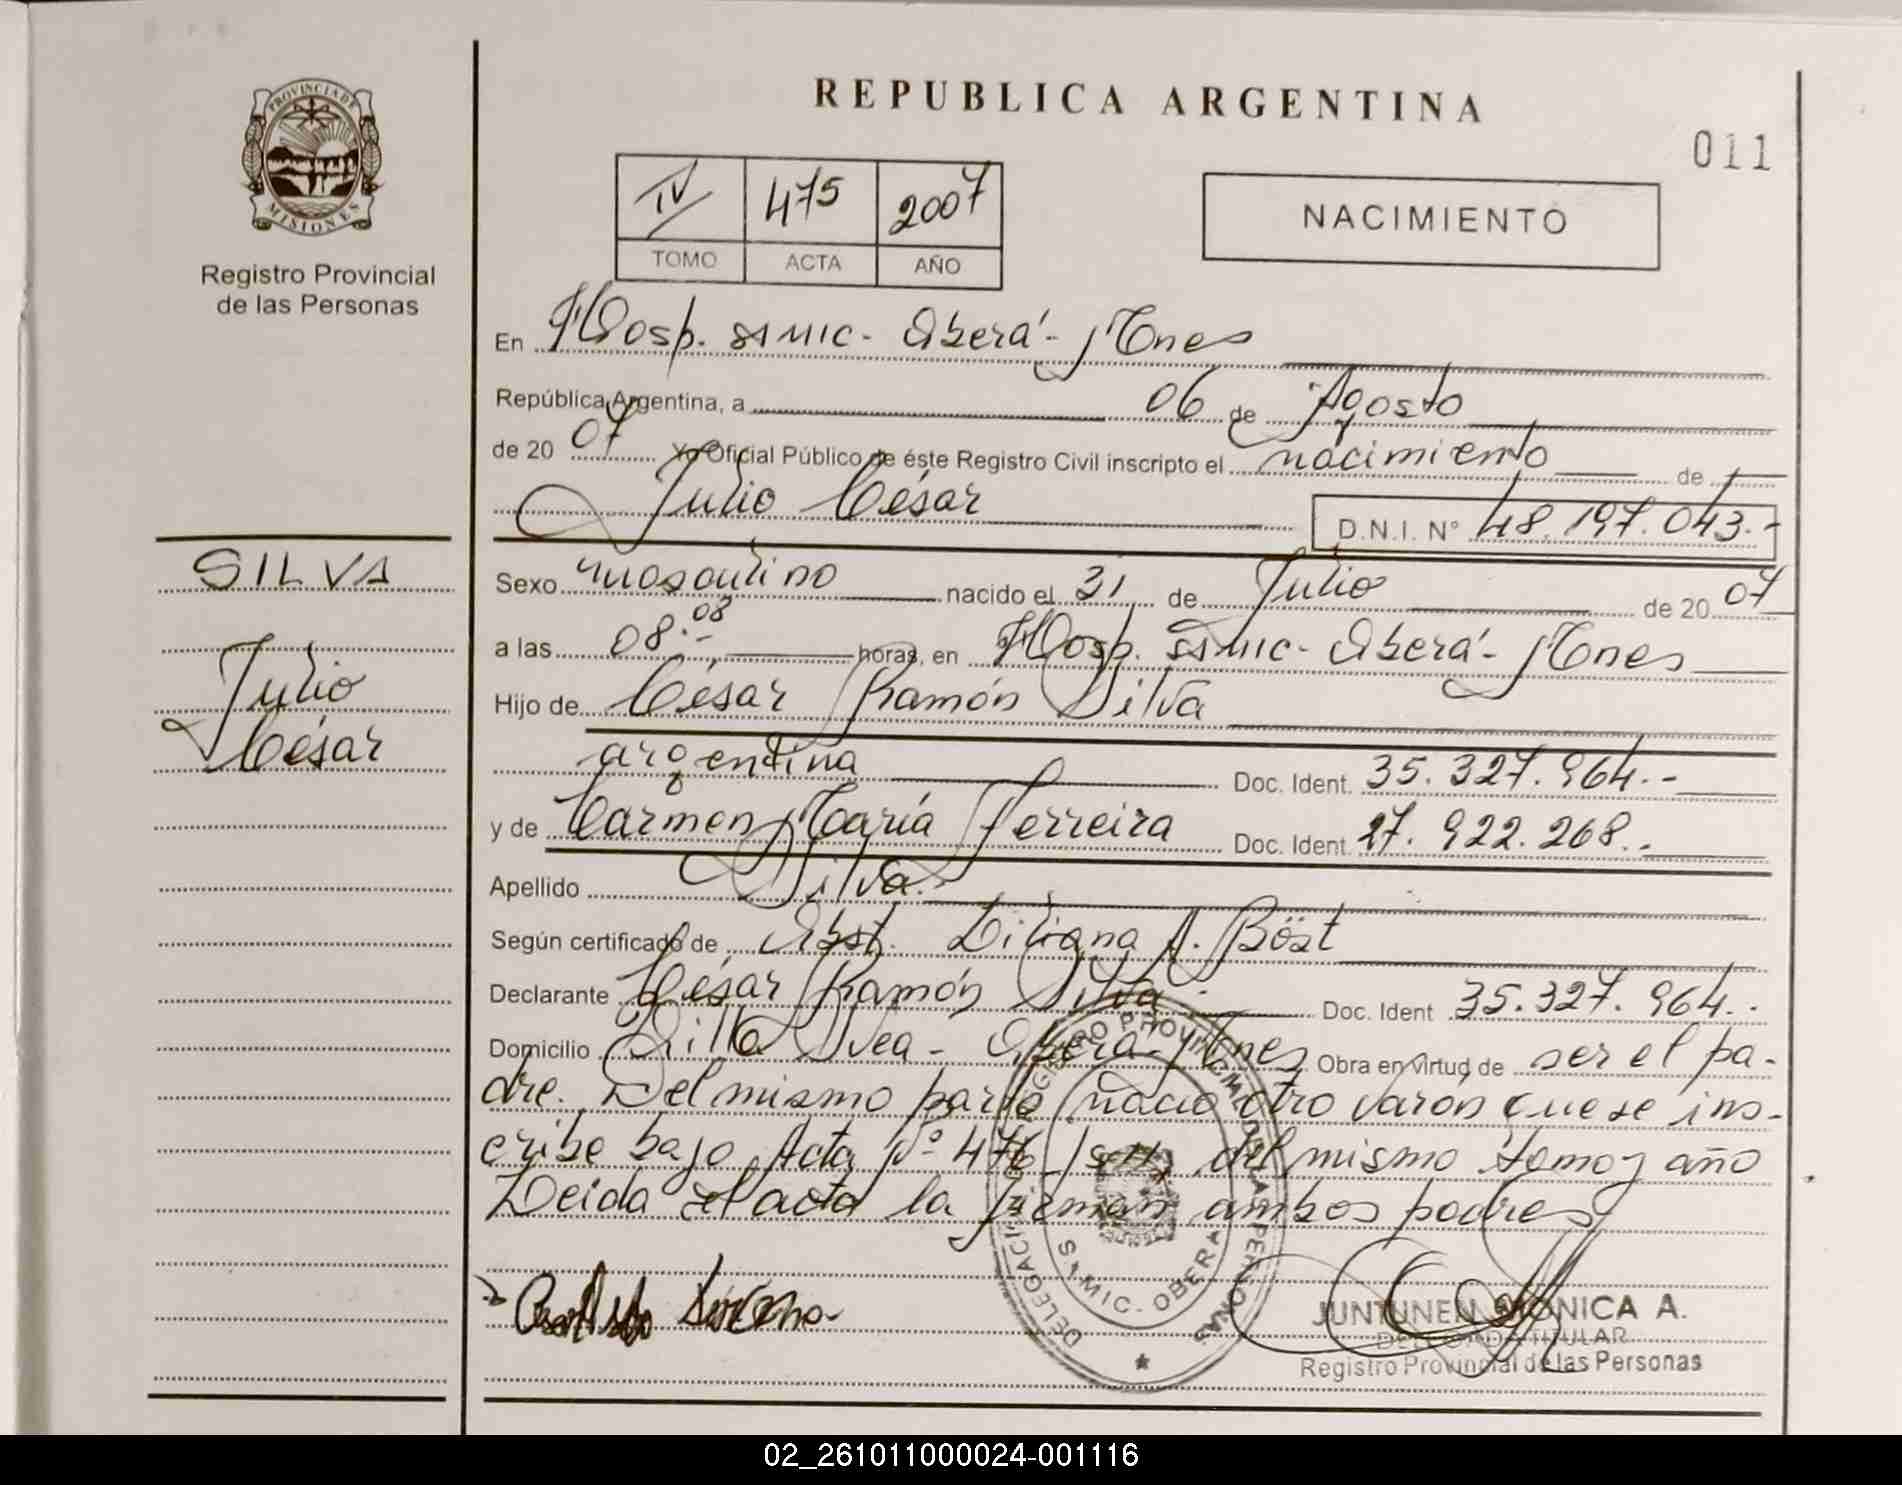 REPUBLICA ARGENTINA
011
PROVINCIA DE
MISIONES
Registro Provincial
de las Personas
IV 475 2007
TOMO ACTA AÑO
NACIMIENTO
En Hosp. SAMIC - Oberá - Mnes
República Argentina, a 06 de Agosto
de 20 07 Yo Oficial Público de éste Registro Civil inscripto el nacimiento de
Julio César D.N.I. Nº 48.197.043.-
SILVA
Julio
César
Sexo masculino nacido el 31 de Julio de 20 07
a las 08:08 horas, en Hosp. SAMIC - Oberá - Mnes
Hijo de César Ramón Silva
argentina Doc. Ident. 35.327.964.-
y de Carmen María Ferreira Doc. Ident. 27.922.268.-
Apellido Silva.-
Según certificado de Obst. Liliana A. Böst
Declarante César Ramón Silva.- Doc. Ident 35.327.964.-
Domicilio Villa Svea - Oberá - Mnes Obra en virtud de ser el pa-
dre. Del mismo parto nació otro varón que se ins-
cribe bajo Acta Nº 476 del mismo tomo y año
Leida el acta la firman ambos padres
DELEGACION REGISTRO PROVINCIAL DE LAS PERSONAS
SAMIC - OBERA
JUNTUNEN MONICA A.
DELEGADA TITULAR
Registro Provincial de las Personas
02_261011000024-001116